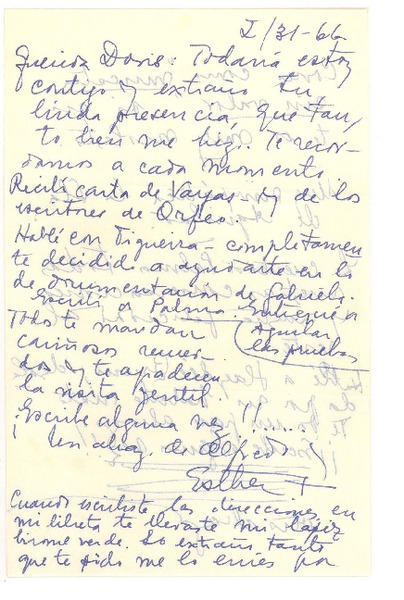 I/31-66
Querida Doris: Todavía estoy
contigo y extraño tu
linda presencia, que tan,
to bien me hizo. Te recor-
damos a cada momento
Recibí carta de Vargas y de los
escritores de Orfeo.
Hablé con Figueira - completamen
te decidido a ayudarte en lo
de documentacion de Gabriela.
Escribí a Palma. Entregué a
Aguilar
las pruebas
Todos te mandan
cariñosos recuer-
dos y te agradecen
la visita gentil.
¡Escribe alguna vez!!....
Un abrazo de Alfredo y
Esther
Cuando escribiste las direcciones en
mi libreta te llevaste mi lápiz
birome verde. Lo extraño tanto
que te pido me lo envíes por